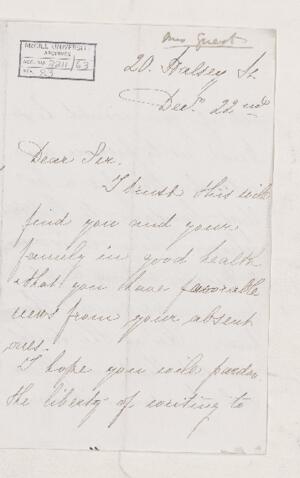 Mrs Guest
McGILL UNIVERSITY
ARCHIVES
ACC. NO. 2211/63
REF. 83
20. Halsey St.
Decr. 22nd
Dear Sir.
I trust this will
find you and your
family in good health
& that you have favorable
news from your absent
ones.
I hope you will pardon
the liberty of writing to